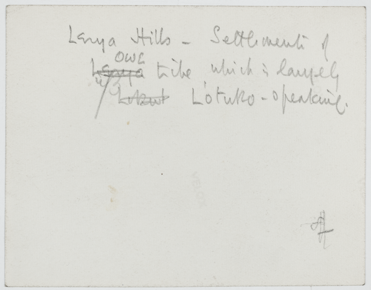 Lenya Hills - Settlements of
OWE
tribe which is largely
Lotuko-speaking.